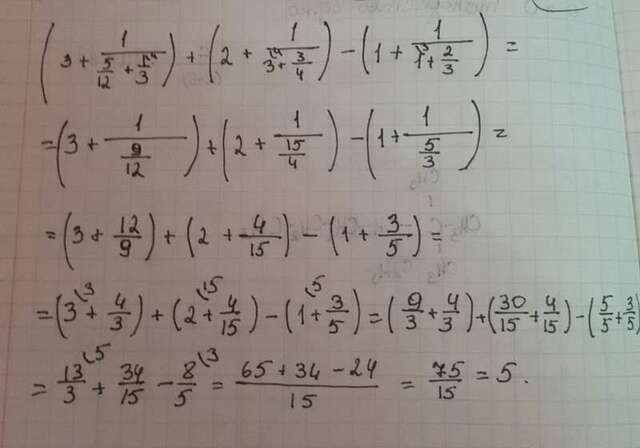 (3 + 1/(5/12 + 1/3)) + (2 + 1/(3 + 3/4)) - (1 + 1/(1 + 2/3)) =
= (3 + 1/(9/12)) + (2 + 1/(15/4)) - (1 + 1/(5/3)) =
= (3 + 12/9) + (2 + 4/15) - (1 + 3/5) =
= (3 + 4/3) + (2 + 4/15) - (1 + 3/5) = (9/3 + 4/3) + (30/15 + 4/15) - (5/5 + 3/5)
= 13/3 + 34/15 - 8/5 = (65 + 34 - 24)/15 = 75/15 = 5.